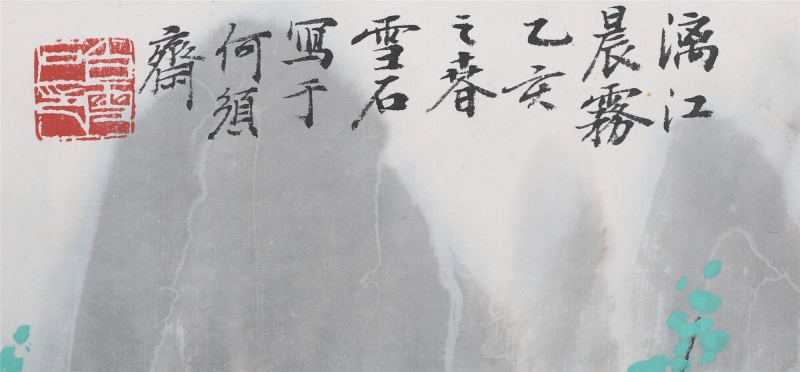 漓江
晨霧
乙亥
之春
雪石
寫于
何須
齋